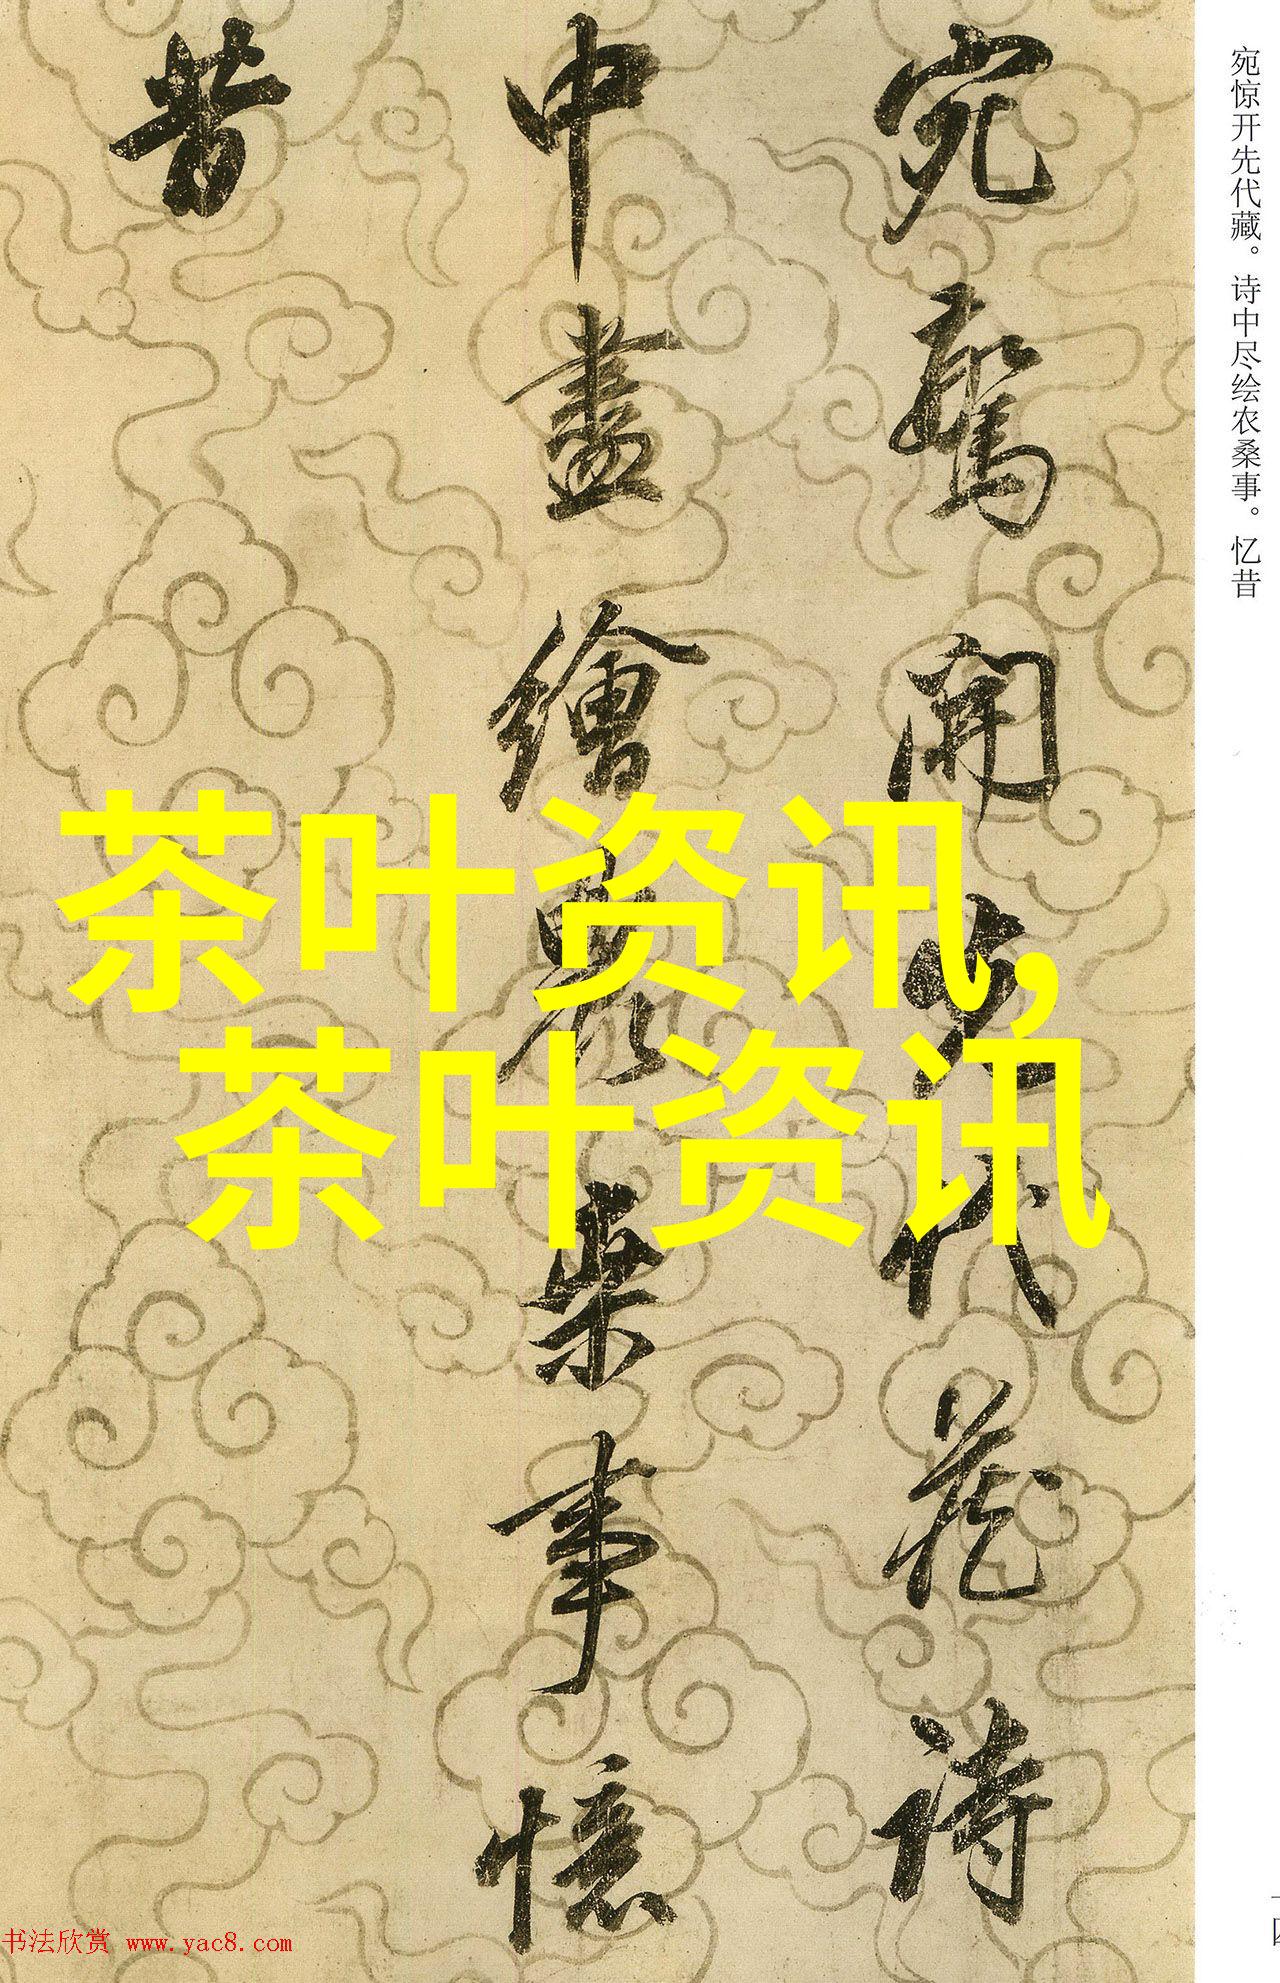 宛惊开先代藏。诗中尽绘农桑事。忆昔
宛驚開先代藏詩
中盡繪農桑事憶
昔
茶叶资讯,
茶叶资讯
书法欣赏 www.yac8.com